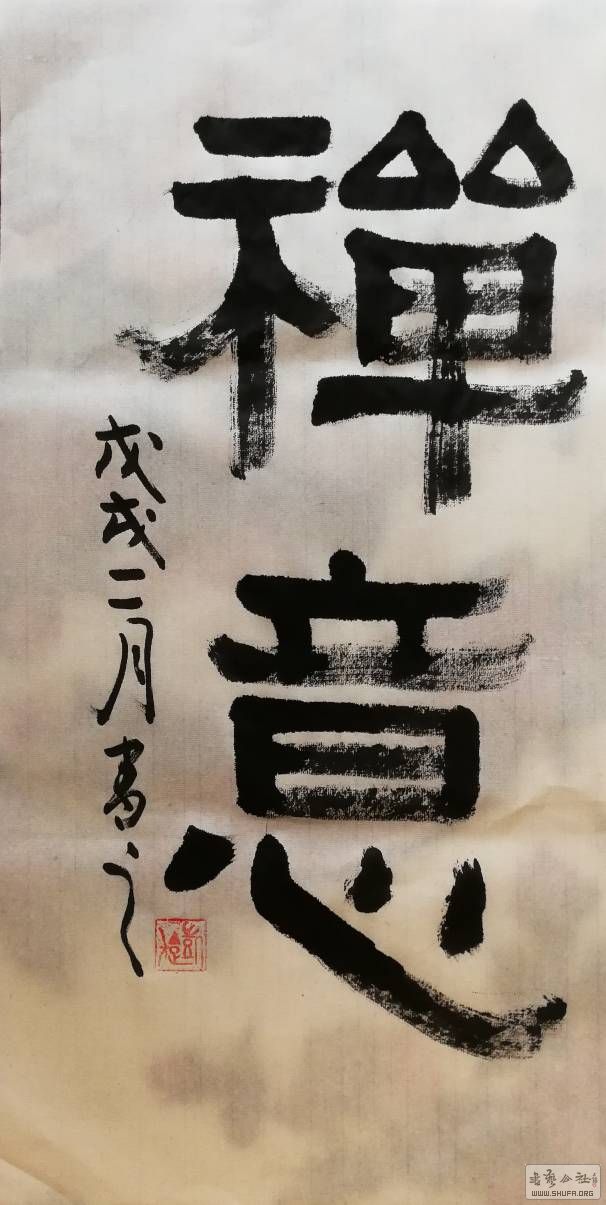 禪意
戊戌二月書之
書藝公社
WWW.SHUFA.ORG